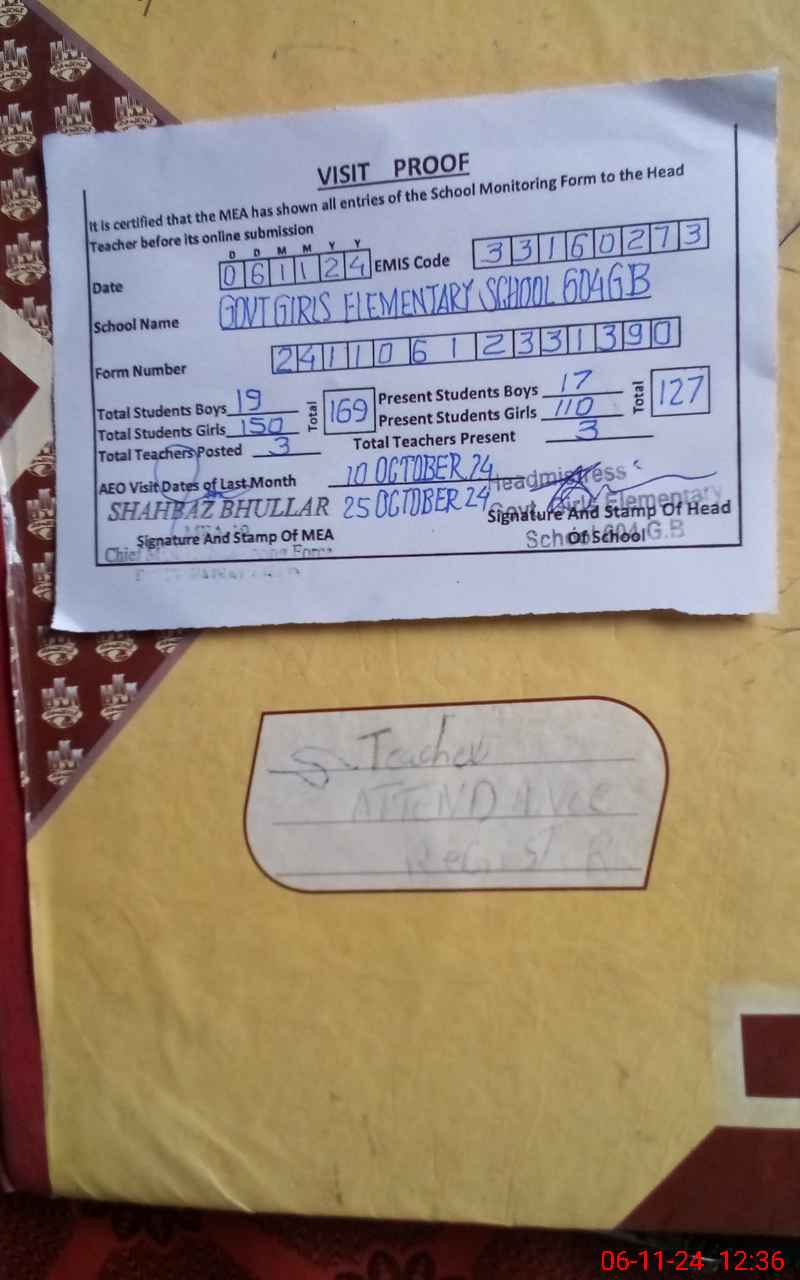 VISIT PROOF
It is certified that the MEA has shown all entries of the School Monitoring Form to the Head
Teacher before its online submission
D D M M Y Y
Date 061124 EMIS Code 33160273
School Name GOVT GIRLS ELEMENTARY SCHOOL 604GB
Form Number 24110612331390
Total Students Boys 19 Total 169 Present Students Boys 17 Total 127
Total Students Girls 150 Present Students Girls 110
Total Teachers Posted 3 Total Teachers Present 3
AEO Visit Dates of Last Month 10 OCTOBER 24 Headmistress
SHAHBAZ BHULLAR 25 OCTOBER 24 Govt. Girls Elementary
Signature And Stamp Of MEA Signature And Stamp Of Head
Chief School 604 G.B
Of School
Teacher
ATTENDANCE
06-11-24 12:36